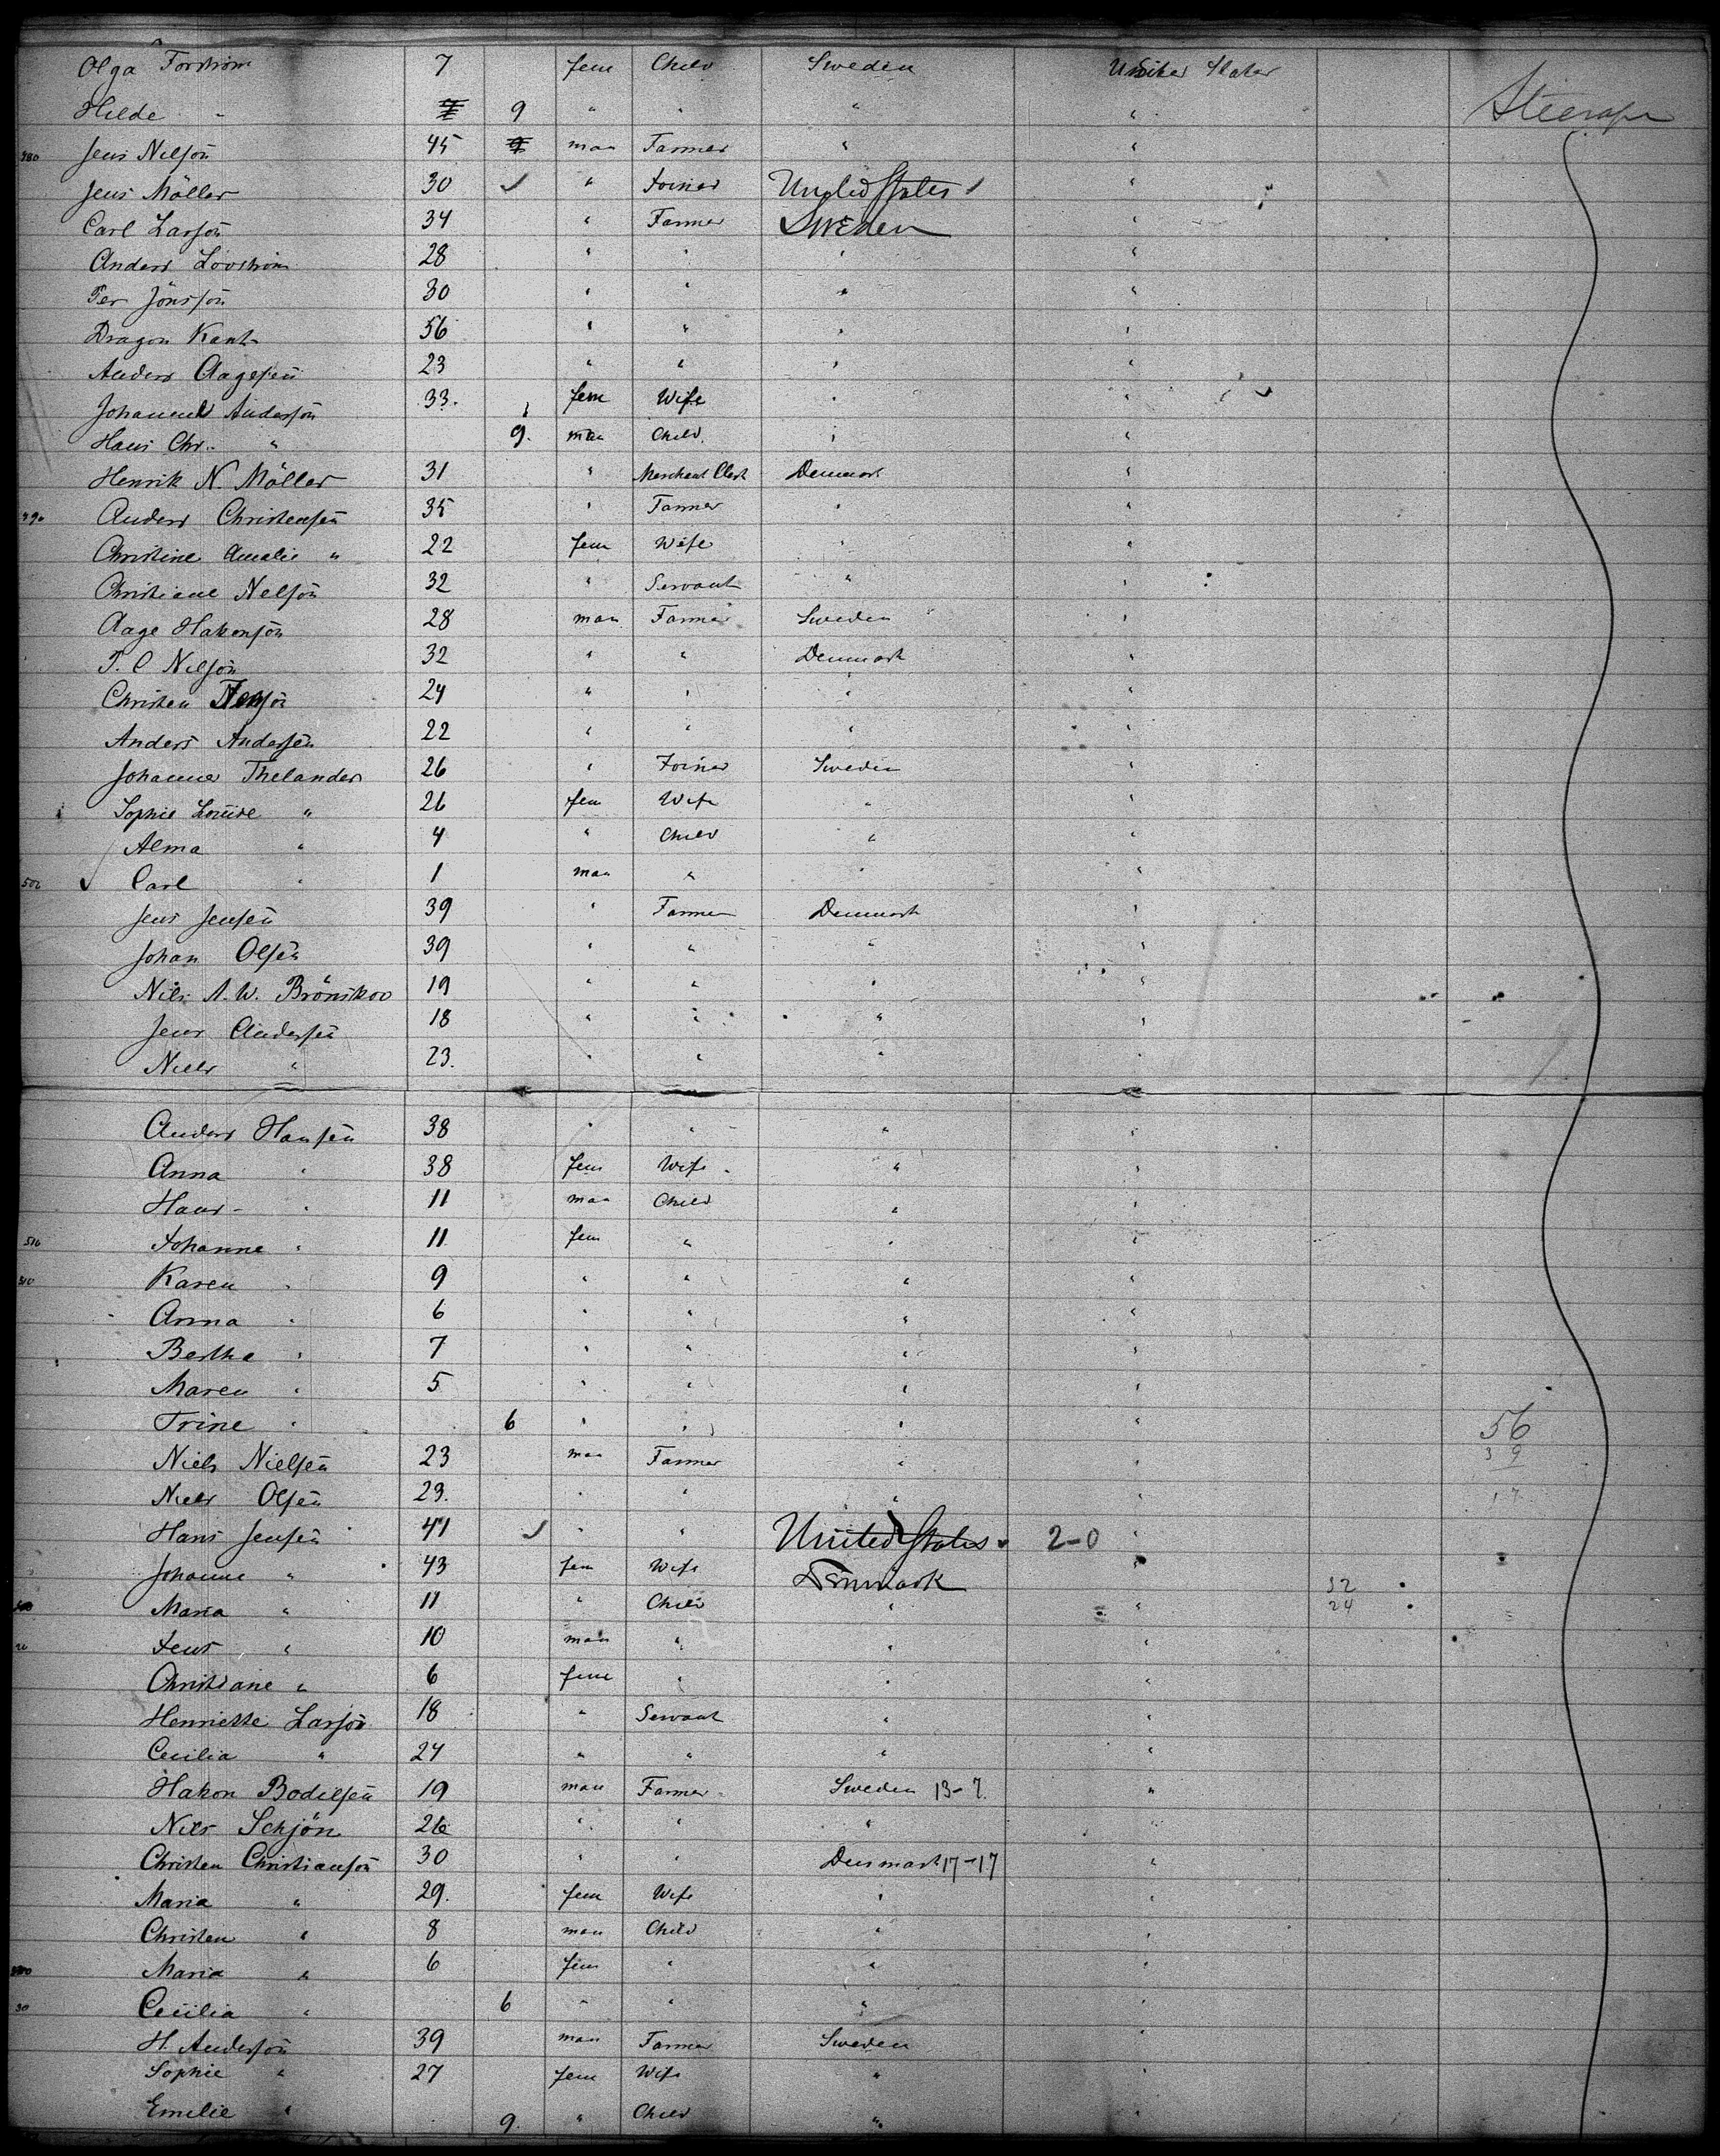 Olga Forström 7 fem Child Sweden United States
Hilde " 9 " " " " Steerage
480 Jens Nelson 45 man Farmer " "
Jens Möller 30 ✓ " Joiner United States "
Carl Larson 34 " Farmer Sweden "
Anders Lovström 28 " " " "
Per Jönsson 30 " " " "
Dragon Kant 56 " " " "
Anders Aagesen 23 " " " "
Johanne Anderson 33 fem Wife " "
Hans Chr. " 9 man Child " "
Henrik N. Möller 31 " Merchant Clerk Denmark "
490 Anders Christensen 35 " Farmer " "
Christine Amalie " 22 fem Wife " "
Christiane Nelson 32 " Servant " "
Aage Hakonson 28 man Farmer Sweden "
P. C Nelson 32 " " Denmark "
Christen 24 " " " "
Anders Andersen 22 " " " "
Johannes Thelander 26 " Joiner Sweden "
Sophie Louise " 26 fem Wife " "
Alma " 4 " Child " "
✓ Carl " 1 man " " "
Jens Jensen 39 " Farmer Denmark "
Johan Olsen 39 " " " "
Niels A. W. Brönskov 19 " " " "
Jens Andersen 18 " " " "
Niels " 23 " " " "
Anders Hansen 38 " " " "
Anna " 38 fem Wife " "
Hans " 11 man Child " "
Johanne " 11 fem " " "
510 Karen " 9 " " " "
Anna " 6 " " " "
Bertha " 7 " " " "
Maren " 5 " " " "
Trine " 6 " " " " 56
Niels Nielsen 23 man Farmer " " 39
Niels Olsen 23 " " " " 17
Hans Jensen 47 ✓ " " United States 2-0 "
Johanne " 43 fem Wife Denmark " 32
Maria " 11 " Child " " 24
20 Jens " 10 man " " "
Christiane " 6 fem " " "
Henriette Larson 18 " Servant " "
Cecilia " 24 " " " "
Hakon Bodilsen 19 man Farmer Sweden 13-7 "
Nils Schjön 26 " " " "
Christen Christianson 30 " " Denmark 17-17 "
Maria " 29 fem Wife " "
Christen " 8 man Child " "
Maria " 6 fem " " "
30 Cecilia " 6 " " " "
H. Anderson 39 man Farmer Sweden "
Sophie " 27 fem Wife " "
Emilie " 9 " Child " "